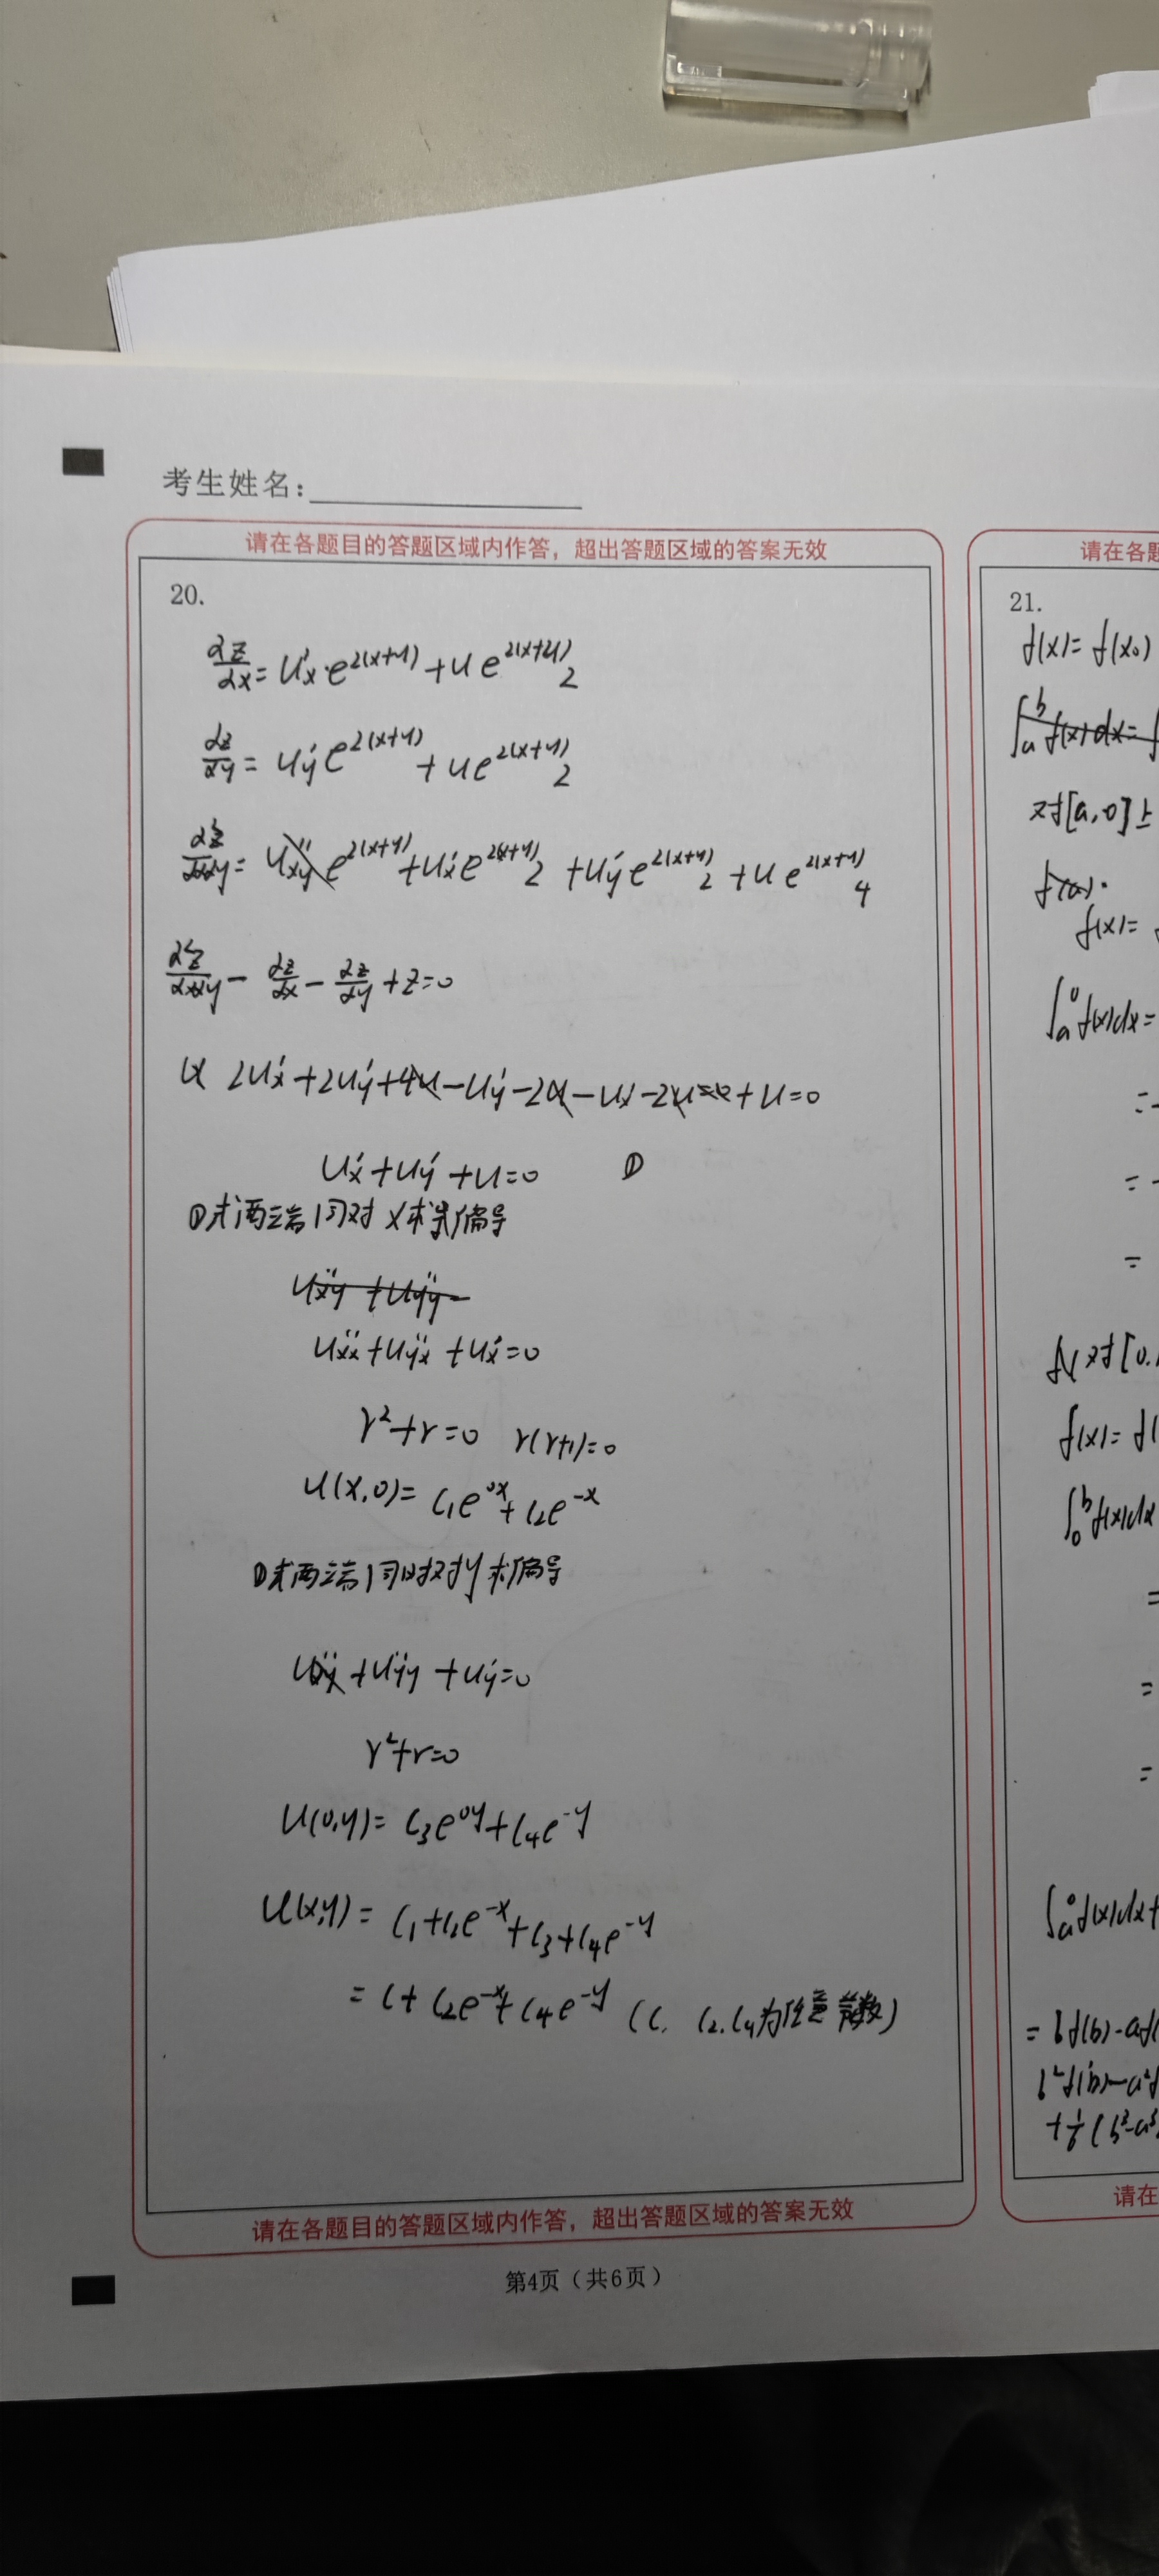 考生姓名：
请在各题目的答题区域内作答，超出答题区域的答案无效
20.
∂z/∂x = u'x·e^2(x+y) + u e^2(x+y) 2
∂z/∂y = u'y e^2(x+y) + u e^2(x+y) 2
∂²z/∂x∂y = u''xy e^2(x+y) + u'x e^2(x+y) 2 + u'y e^2(x+y) 2 + u e^2(x+y) 4
∂²z/∂x∂y - ∂z/∂x - ∂z/∂y + z = 0
2u'x + 2u'y + 4u - u'y - 2u - u'x - 2u + u = 0
u'x + u'y + u = 0 ①
①式两端同对x求偏导
u''xy + u''yy =
u''xx + u''yx + u'x = 0
r² + r = 0 r(r+1) = 0
u(x,0) = C1e^0x + C2e^-x
①式两端同时对y求偏导
u''xy + u''yy + u'y = 0
r² + r = 0
u(0,y) = C3e^0y + C4e^-y
u(x,y) = C1 + C2e^-x + C3 + C4e^-y
= C + C2e^-x + C4e^-y (C, C2, C4为任意常数)
请在各题目的答题区域内作答，超出答题区域的答案无效
第4页（共6页）
请在各题
21.
f(x) = f(x0)
∫a^b f(x)dx =
对[a,0]上
f(a).
f(x) =
∫a^0 f(x)dx =
= -
= -
=
对[0,
f(x) = f(
∫0^b f(x)dx
=
=
=
∫a^0 f(x)dx +
= bf(b) - af(
b²f'(b) - a²f
+ 1/6 (b³ - a³
请在